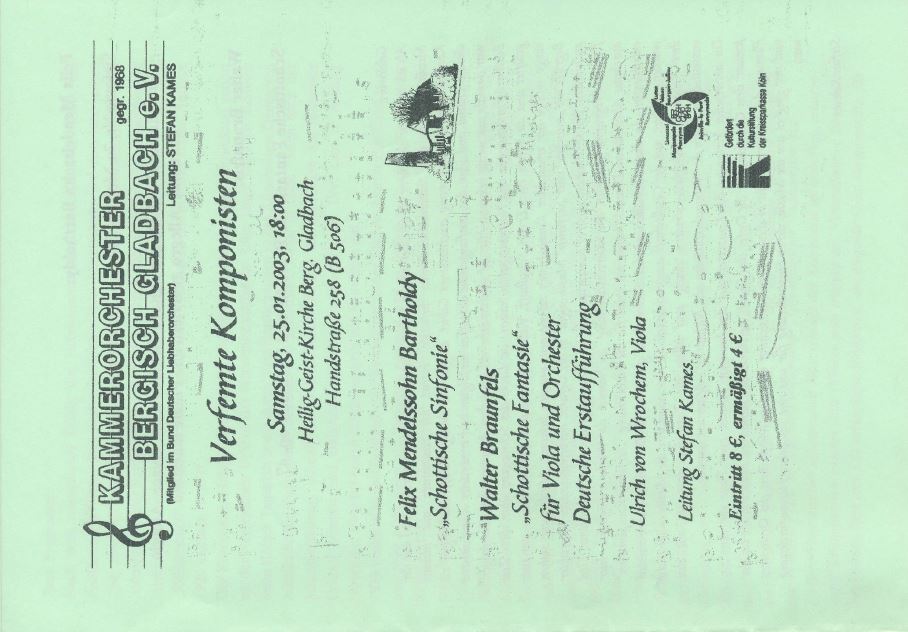 KAMMERORCHESTER
gegr. 1968
BERGISCH GLADBACH e.V.
(Mitglied im Bund Deutscher Liebhaberorchester)
Leitung: STEFAN KAMES
Verfemte Komponisten
Samstag, 25.01.2003, 18:00
Heilig-Geist-Kirche Berg. Gladbach
Handstraße 258 (B 506)
Felix Mendelssohn Bartholdy
„Schottische Sinfonie“
Walter Braunfels
„Schottische Fantasie“
für Viola und Orchester
Deutsche Erstaufführung
Ulrich von Wrochem, Viola
Leitung Stefan Kames
Eintritt 8 €, ermäßigt 4 €
Gefördert
durch die
Kulturstiftung
der Kreissparkasse Köln